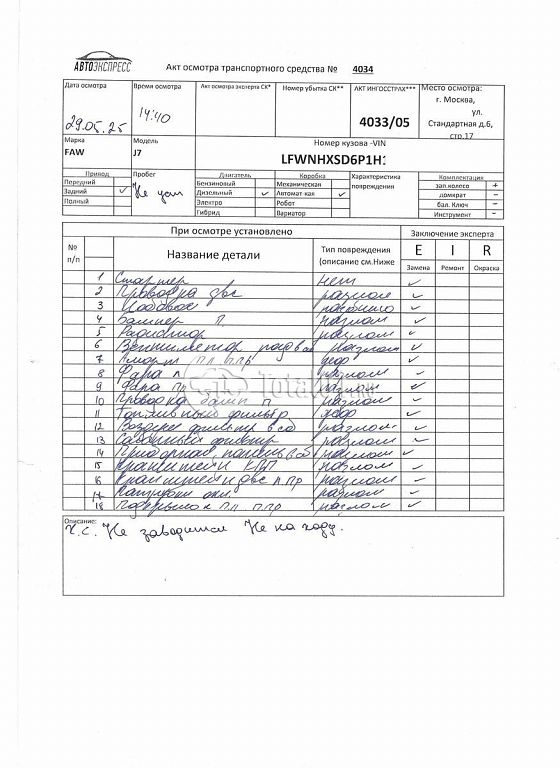 АВТОЭКСПРЕСС
Акт осмотра транспортного средства № 4034
Дата осмотра Время осмотра Акт осмотра эксперта СК* Номер убытка СК** АКТ ИНГОССТРАХ*** Место осмотра:
29.05.25 14:40 4033/05 г. Москва,
ул.
Стандартная д.6,
стр.17
Марка Модель Номер кузова -VIN
FAW J7 LFWNHXSD6P1H
Привод Пробег Двигатель Коробка Характеристика повреждения Комплектация
Передний Не уст Бензиновый Механическая зап.колесо +
Задний ✓ Дизельный ✓ Автомат кая ✓ домкрат -
Полный Электро Робот бал. Ключ -
Гибрид Вариатор Инструмент -
При осмотре установлено Заключение эксперта
№ п/п Название детали Тип повреждения (описание см.Ниже E I R
Замена Ремонт Окраска
1 Стартер нет ✓
2 Проводка двс разлом ✓
3 ✓
4 Бампер П разлом ✓
5 Радиатор разлом ✓
6 Вентилятор разлом ✓
7 ПЛ ППР деф ✓
8 Фара Л разлом ✓
9 Фара ПР разлом ✓
10 Проводка бамп П разлом ✓
11 Топливный фильтр деф ✓
12 фильтр разлом ✓
13 Салонный фильтр разлом ✓
14 Приборная панель разлом ✓
15 Кронштейн КПП разлом ✓
16 Кронштейн двс Л ПР разлом ✓
17 Патрубки разлом ✓
18 Подкрылок ПЛ ППР разлом ✓
Описание:
Т.С. Не заводится Не на ходу.